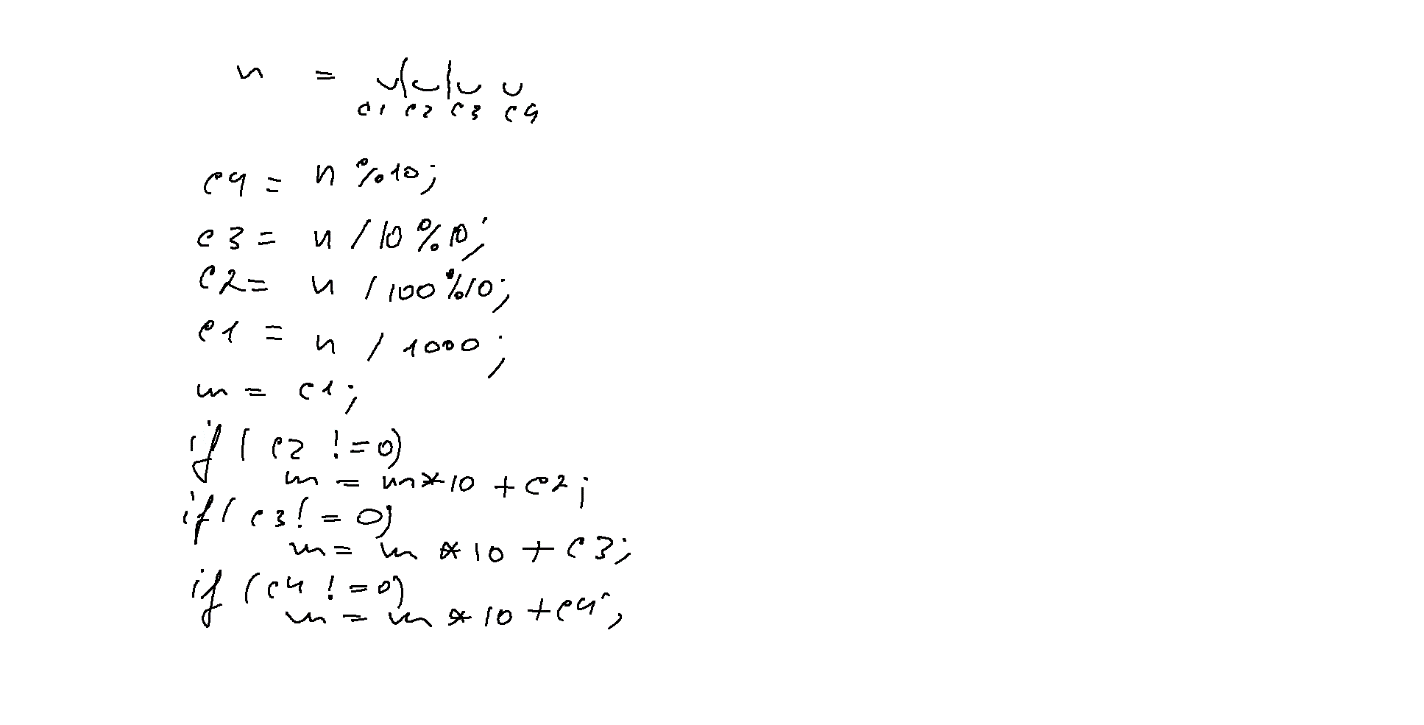 n =
c1 c2 c3 c4
c4 = n %10;
c3 = n / 10 % 10;
c2 = n / 100 % 10;
c1 = n / 1000;
m = c1;
if ( c2 != 0)
m = m*10 + c2;
if ( c3 != 0)
m = m * 10 + c3;
if (c4 != 0)
m = m * 10 + c4;